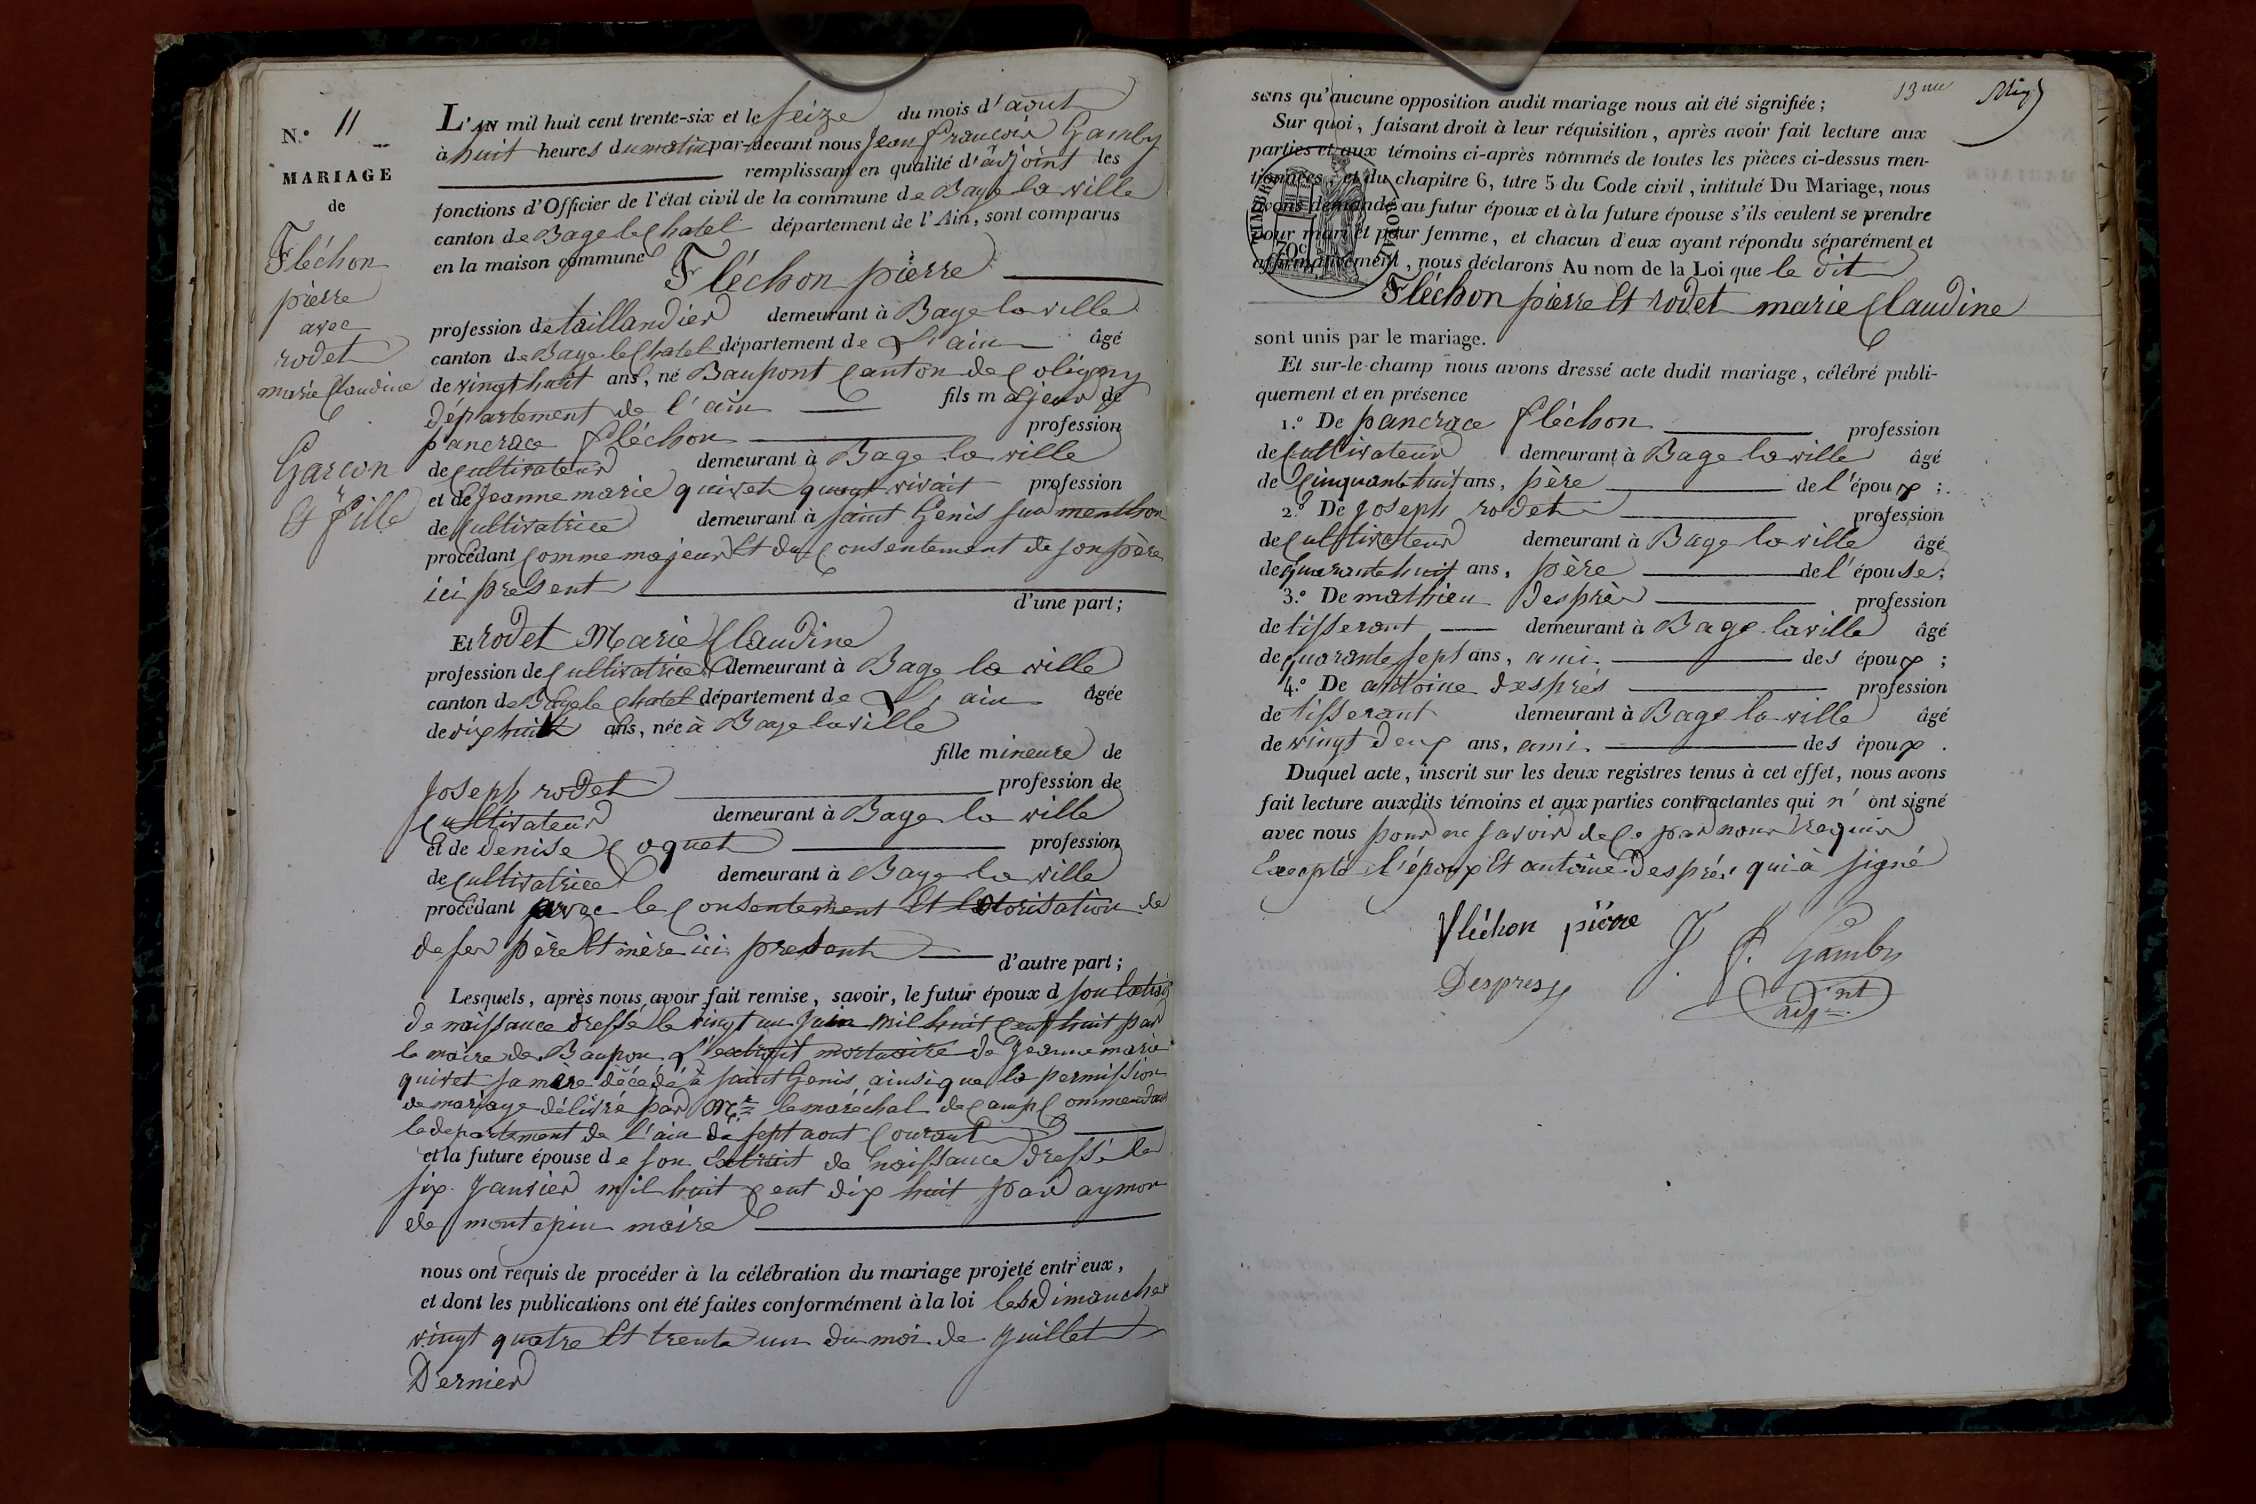 N.° 11
MARIAGE
de
Fléchon
pierre
avec
rodet
marie Claudine
Garcon
Et fille
L'AN mil huit cent trente-six et le seize du mois d'aout
à huit heures du matin par-devant nous Jean françois Gamby
remplissant en qualité d'adjoint les
fonctions d'Officier de l'état civil de la commune de Bage la ville
canton de Bage le Chatel département de l'Ain, sont comparus
en la maison commune
Fléchon pierre
profession de taillandier demeurant à Bage la ville
canton de Bage le Chatel département de L'ain âgé
de vingt huit ans, né Baupont Canton de Coligny
département de l'ain fils majeur de
pancrace fléchon profession
de Cultivateur demeurant à Bage la ville
et de Jeanne marie quivet quant vivait profession
de Cultivatrice demeurant à saint Genis sur menthon
procédant Comme majeur Et du Consentement de son père
ici présent
d'une part;
Et rodet Marie Claudine
profession de Cultivatrice demeurant à Bage la ville
canton de Bage le Chatel département de L'ain âgée
de dix huit ans, née à Bage la ville
fille mineure de
Joseph rodet profession de
Cultivateur demeurant à Bage la ville
et de denise Coquet profession
de Cultivatrice demeurant à Bage la ville
procédant avec le Consentement Et lotorisation de
de ses père Et mère ici present
d'autre part;
Lesquels, après nous avoir fait remise, savoir, le futur époux d son
de naissance dressé le vingt un Juin mil huit Cent huit par
le maire de Baupon L'extrait mortuaire de Jeanne marie
quivet sa mère décédé à saint Genis ainsi que la permission
de mariage délivré par Mr le maréchal de Camp Commendant
le departement de l'ain du sept aout Courant
et la future épouse de son Extrait de naissance dressé le
six Janvier mil huit Cent dix huit par aymon
de montepin maire
nous ont requis de procéder à la célébration du mariage projeté entr'eux,
et dont les publications ont été faites conformément à la loi les dimanches
vingt quatre Et trente un du moi de Juillet
Dernier
13me
sans qu'aucune opposition audit mariage nous ait été signifiée;
Sur quoi, faisant droit à leur réquisition, après avoir fait lecture aux
parties et aux témoins ci-après nommés de toutes les pièces ci-dessus men-
tionnées, et du chapitre 6, titre 5 du Code civil, intitulé Du Mariage, nous
avons demandé au futur époux et à la future épouse s'ils veulent se prendre
pour mari et pour femme, et chacun d'eux ayant répondu séparément et
affirmativement, nous déclarons Au nom de la Loi que le dit
TIMBRE ROYAL
70c
Fléchon pierre Et rodet marie Claudine
sont unis par le mariage.
Et sur-le-champ nous avons dressé acte dudit mariage, célébré publi-
quement et en présence
1.° De pancrace fléchon profession
de Cultivateur demeurant à Bage la ville âgé
de Cinquante huit ans, père de l'époux;
2.° De Joseph rodet profession
de Cultivateur demeurant à Bage la ville âgé
de quarante huit ans, père de l'épouse;
3.° De mathieu desprès profession
de tisserant demeurant à Bage la ville âgé
de quarante sept ans, ami des époux;
4.° De antoine desprès profession
de tisserant demeurant à Bage la ville âgé
de vingt deux ans, ami des époux.
Duquel acte, inscrit sur les deux registres tenus à cet effet, nous avons
fait lecture auxdits témoins et aux parties contractantes qui n'ont signé
avec nous pour ne savoir de Ce par nous requis
Excepté l'époux Et antoine desprès qui à signé
fléchon pierre
J. f. Gamby
Despres
adjnt